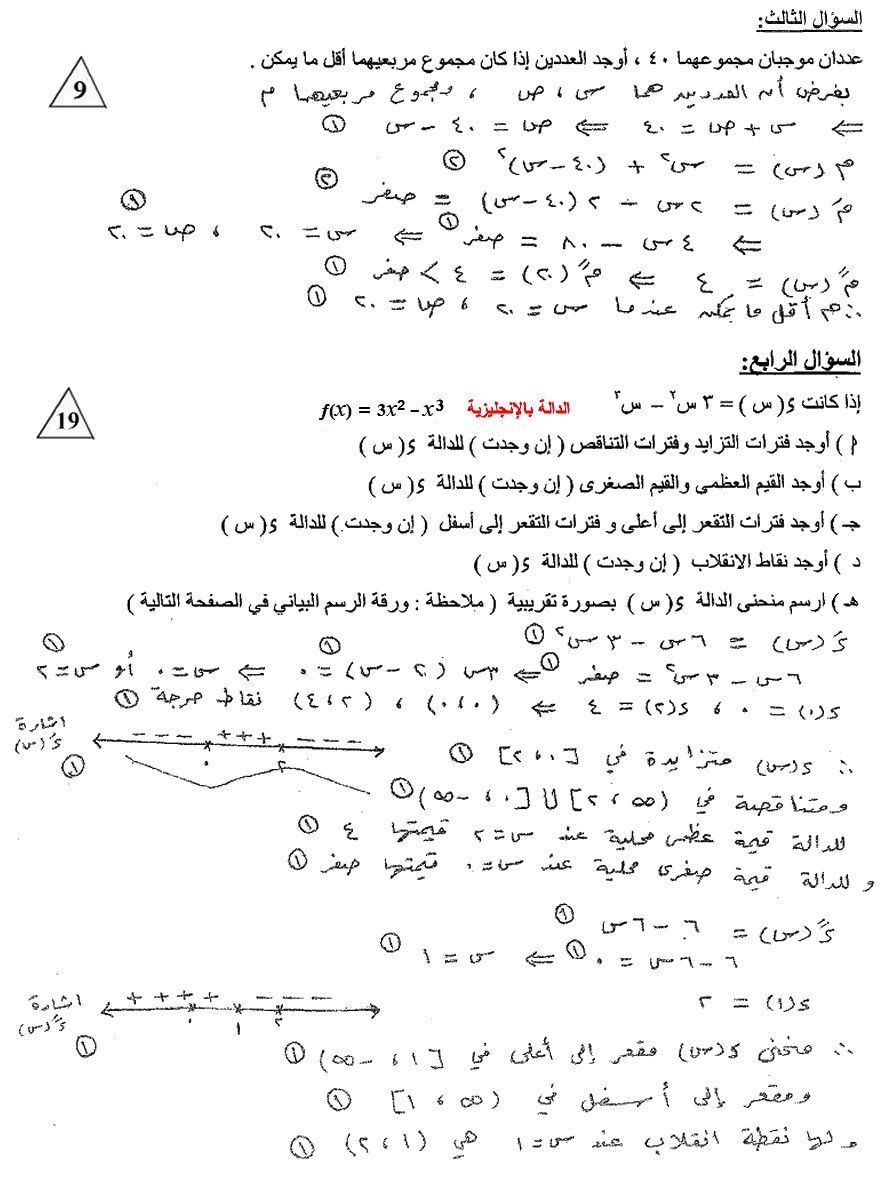 السؤال الثالث:
عددان موجبان مجموعهما ٤٠ ، أوجد العددين إذا كان مجموع مربعيهما أقل ما يمكن .
9
بفرض أن العددين هما س ، ص ، ومجموع مربعيهما م
⇐ س + ص = ٤٠ ⇐ ص = ٤٠ − س ①
م (س) = س² + (٤٠ − س)² ②
مَ (س) = ٢س − ٢ (٤٠ − س) = صفر ③
⇐ ٤س − ٨٠ = صفر ① ⇐ س = ٢٠ ، ص = ٢٠ ①
مً (س) = ٤ ⇐ مً (٢٠) = ٤ > صفر ①
∴ م أقل ما يمكن عندما س = ٢٠ ، ص = ٢٠ ①
السؤال الرابع:
19
إذا كانت د( س ) = ٣ س² − س³ الدالة بالإنجليزية f(x) = 3x² – x³
أ ) أوجد فترات التزايد وفترات التناقص ( إن وجدت ) للدالة د( س )
ب ) أوجد القيم العظمى والقيم الصغرى ( إن وجدت ) للدالة د( س )
جـ ) أوجد فترات التقعر إلى أعلى و فترات التقعر إلى أسفل ( إن وجدت ) للدالة د( س )
د ) أوجد نقاط الانقلاب ( إن وجدت ) للدالة د( س )
هـ ) ارسم منحنى الدالة د( س ) بصورة تقريبية ( ملاحظة : ورقة الرسم البياني في الصفحة التالية )
دَ (س) = ٦س − ٣س² ①
٦س − ٣س² = صفر ① ⇐ ٣س (٢ − س) = ٠ ① ⇐ س = ٠ أو س = ٢ ①
د(٠) = ٠ ، د(٢) = ٤ ⇐ (٠،٠) ، (٢،٤) نقاط حرجة ①
اشارة دَ (س) − − − + + + − − −
٠ ٢ ①
∴ د(س) متزايدة في [٠ ، ٢] ①
ومتناقصة في (∞ ، ٢] U [٠ ، −∞) ①
للدالة قيمة عظمى محلية عند س = ٢ قيمتها ٤ ①
و للدالة قيمة صغرى محلية عند س = ٠ قيمتها صفر ①
دً (س) = ٦ − ٦س ①
٦ − ٦س = ٠ ① ⇐ س = ١ ①
د(١) = ٢
اشارة دً (س) + + + + − − −
٠ ١ ٢ ①
∴ منحنى د(س) مقعر إلى أعلى في [١ ، −∞) ①
ومقعر إلى أسفل في (∞ ، ١] ①
ولها نقطة انقلاب عند س = ١ هي (١ ، ٢) ①